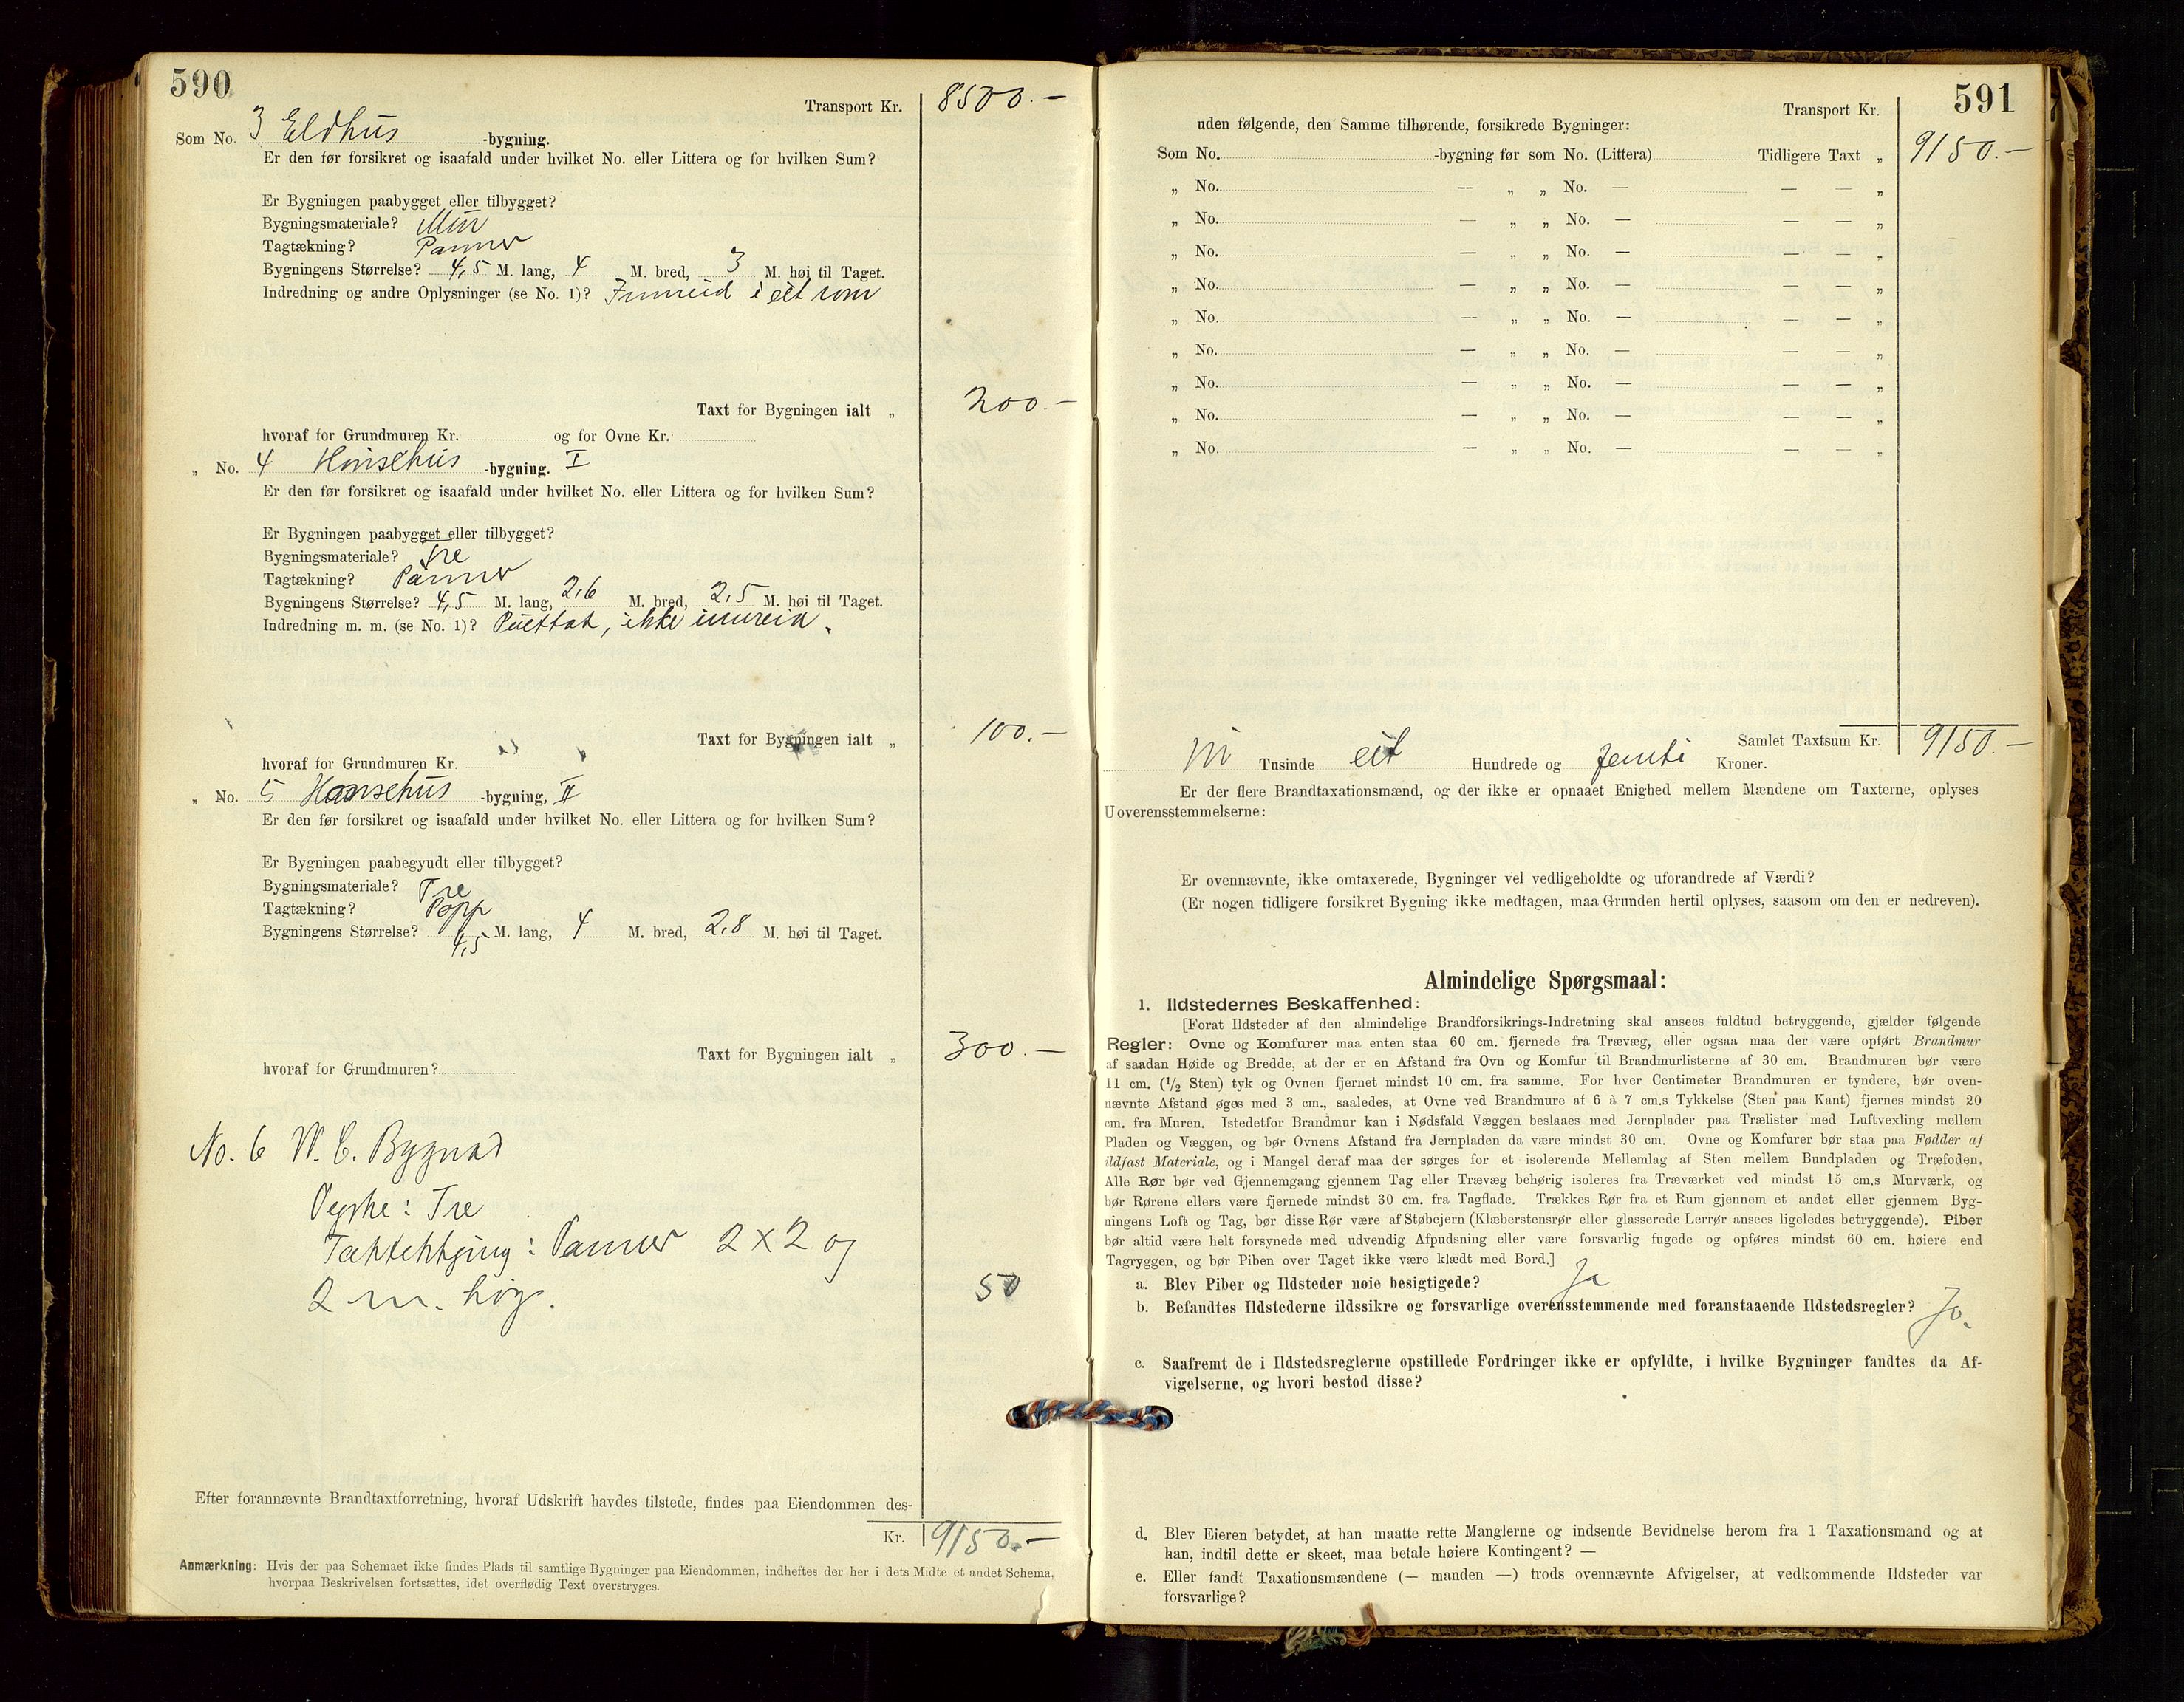 590
Transport Kr. 8500.—
Som No. 3 Eldhus -bygning.
Er den før forsikret og isaafald under hvilket No. eller Littera og for hvilken Sum?
Er Bygningen paabygget eller tilbygget?
Bygningsmateriale? Mur
Tagtækning? Panner
Bygningens Størrelse? 4,5 M. lang, 4 M. bred, 3 M. høi til Taget.
Indredning og andre Oplysninger (se No. 1)? Innreid i eit rom
Taxt for Bygningen ialt „ 200.—
hvoraf for Grundmuren Kr. og for Ovne Kr.
„ No. 4 Hønsehus -bygning. I
Er den før forsikret og isaafald under hvilket No. eller Littera og for hvilken Sum?
Er Bygningen paabygget eller tilbygget?
Bygningsmateriale? Tre
Tagtækning? Panner
Bygningens Størrelse? 4,5 M. lang, 2,6 M. bred, 2,5 M. høi til Taget.
Indredning m. m. (se No. 1)? ikke innreia.
Taxt for Bygningen ialt „ 100.—
hvoraf for Grundmuren Kr.
„ No. 5 Hønsehus -bygning, II
Er den før forsikret og isaafald under hvilket No. eller Littera og for hvilken Sum?
Er Bygningen paabegyudt eller tilbygget?
Bygningsmateriale? Tre
Tagtækning? Papp
Bygningens Størrelse? 4,5 M. lang, 4 M. bred, 2,8 M. høi til Taget.
Taxt for Bygningen ialt „ 300.—
hvoraf for Grundmuren?
No. 6 W. C. Bygnad
: Tre
Taktekkjing: Panner 2 x 2 og
2 m. høg. 50
Efter forannævnte Brandtaxtforretning, hvoraf Udskrift havdes tilstede, findes paa Eiendommen des-
Kr. 9150.—
Anmærkning: Hvis der paa Schemaet ikke findes Plads til samtlige Bygninger paa Eiendommen, indheftes der her i dets Midte et andet Schema,
hvorpaa Beskrivelsen fortsættes, idet overflødig Text overstryges.
591
Transport Kr.
uden følgende, den Samme tilhørende, forsikrede Bygninger:
Som No. -bygning før som No. (Littera) Tidligere Taxt „ 9150.—
„ No. — „ „ No. — — — „
„ No. — „ „ No. — — — „
„ No. — „ „ No. — — — „
„ No. — „ „ No. — — — „
„ No. — „ „ No. — — — „
„ No. — „ „ No. — — — „
„ No. — „ „ No. — — — „
„ No. — „ „ No. — — — „
„ No. — „ „ No. — — — „
Samlet Taxtsum Kr. 9150.—
Ni Tusinde eit Hundrede og femti Kroner.
Er der flere Brandtaxationsmænd, og der ikke er opnaaet Enighed mellem Mændene om Taxterne, oplyses
Uoverensstemmelserne:
Er ovennævnte, ikke omtaxerede, Bygninger vel vedligeholdte og uforandrede af Værdi?
(Er nogen tidligere forsikret Bygning ikke medtagen, maa Grunden hertil oplyses, saasom om den er nedreven).
Almindelige Spørgsmaal:
1. Ildstedernes Beskaffenhed:
[Forat Ildsteder af den almindelige Brandforsikrings-Indretning skal ansees fuldtud betryggende, gjælder følgende
Regler: Ovne og Komfurer maa enten staa 60 cm. fjernede fra Trævæg, eller ogsaa maa der være opført Brandmur
af saadan Høide og Bredde, at der er en Afstand fra Ovn og Komfur til Brandmurlisterne af 30 cm. Brandmuren bør være
11 cm. (1/2 Sten) tyk og Ovnen fjernet mindst 10 cm. fra samme. For hver Centimeter Brandmuren er tyndere, bør oven-
nævnte Afstand øges med 3 cm., saaledes, at Ovne ved Brandmure af 6 à 7 cm.s Tykkelse (Sten paa Kant) fjernes mindst 20
cm. fra Muren. Istedetfor Brandmur kan i Nødsfald Væggen beslaaes med Jernplader paa Trælister med Luftvexling mellem
Pladen og Væggen, og bør Ovnens Afstand fra Jernpladen da være mindst 30 cm. Ovne og Komfurer bør staa paa Fødder af
ildfast Materiale, og i Mangel deraf maa der sørges for et isolerende Mellemlag af Sten mellem Bundpladen og Træfoden.
Alle Rør bør ved Gjennemgang gjennem Tag eller Trævæg behørig isoleres fra Træværket ved mindst 15 cm.s Murværk, og
bør Rørene ellers være fjernede mindst 30 cm. fra Tagflade. Trækkes Rør fra et Rum gjennem et andet eller gjennem Byg-
ningens Loft og Tag, bør disse Rør være af Støbejern (Klæberstensrør eller glasserede Lerrør ansees ligeledes betryggende). Piber
bør altid være helt forsynede med udvendig Afpudsning eller være forsvarlig fugede og opføres mindst 60 cm. høiere end
Tagryggen, og bør Piben over Taget ikke være klædt med Bord.]
a. Blev Piber og Ildsteder nøie besigtigede? Ja
b. Befandtes Ildstederne ildssikre og forsvarlige overensstemmende med foranstaaende Ildstedsregler? Ja.
c. Saafremt de i Ildstedsreglerne opstillede Fordringer ikke er opfyldte, i hvilke Bygninger fandtes da Af-
vigelserne, og hvori bestod disse?
d. Blev Eieren betydet, at han maatte rette Manglerne og indsende Bevidnelse herom fra 1 Taxationsmand og at
han, indtil dette er skeet, maa betale høiere Kontingent? —
e. Eller fandt Taxationsmændene (— manden —) trods ovennævnte Afvigelser, at vedkommende Ildsteder var
forsvarlige?